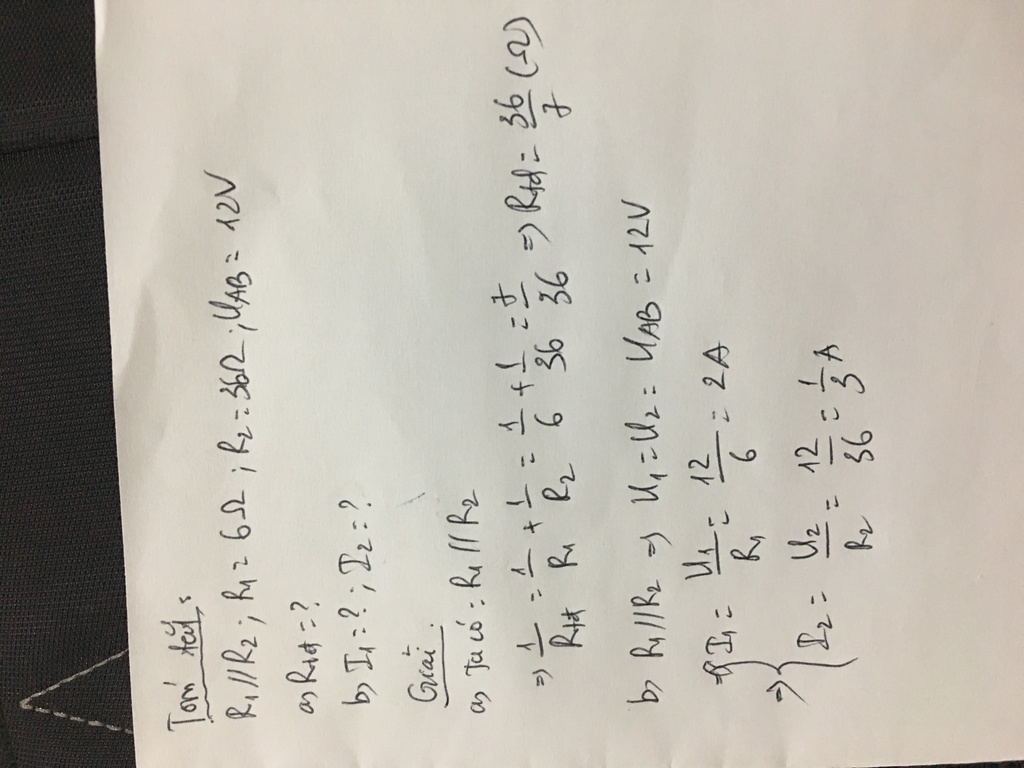 Tóm tắt:
R1//R2; R1=6Ω; R2=36Ω; UAB=12V
a, Rtđ=?
b, I1=?; I2=?
Giải:
a, Ta có: R1//R2
=> 1/Rtđ = 1/R1 + 1/R2 = 1/6 + 1/36 = 7/36 => Rtđ = 36/7 (Ω)
b, R1//R2 => U1=U2=UAB=12V
=> { I1 = U1/R1 = 12/6 = 2A
I2 = U2/R2 = 12/36 = 1/3 A